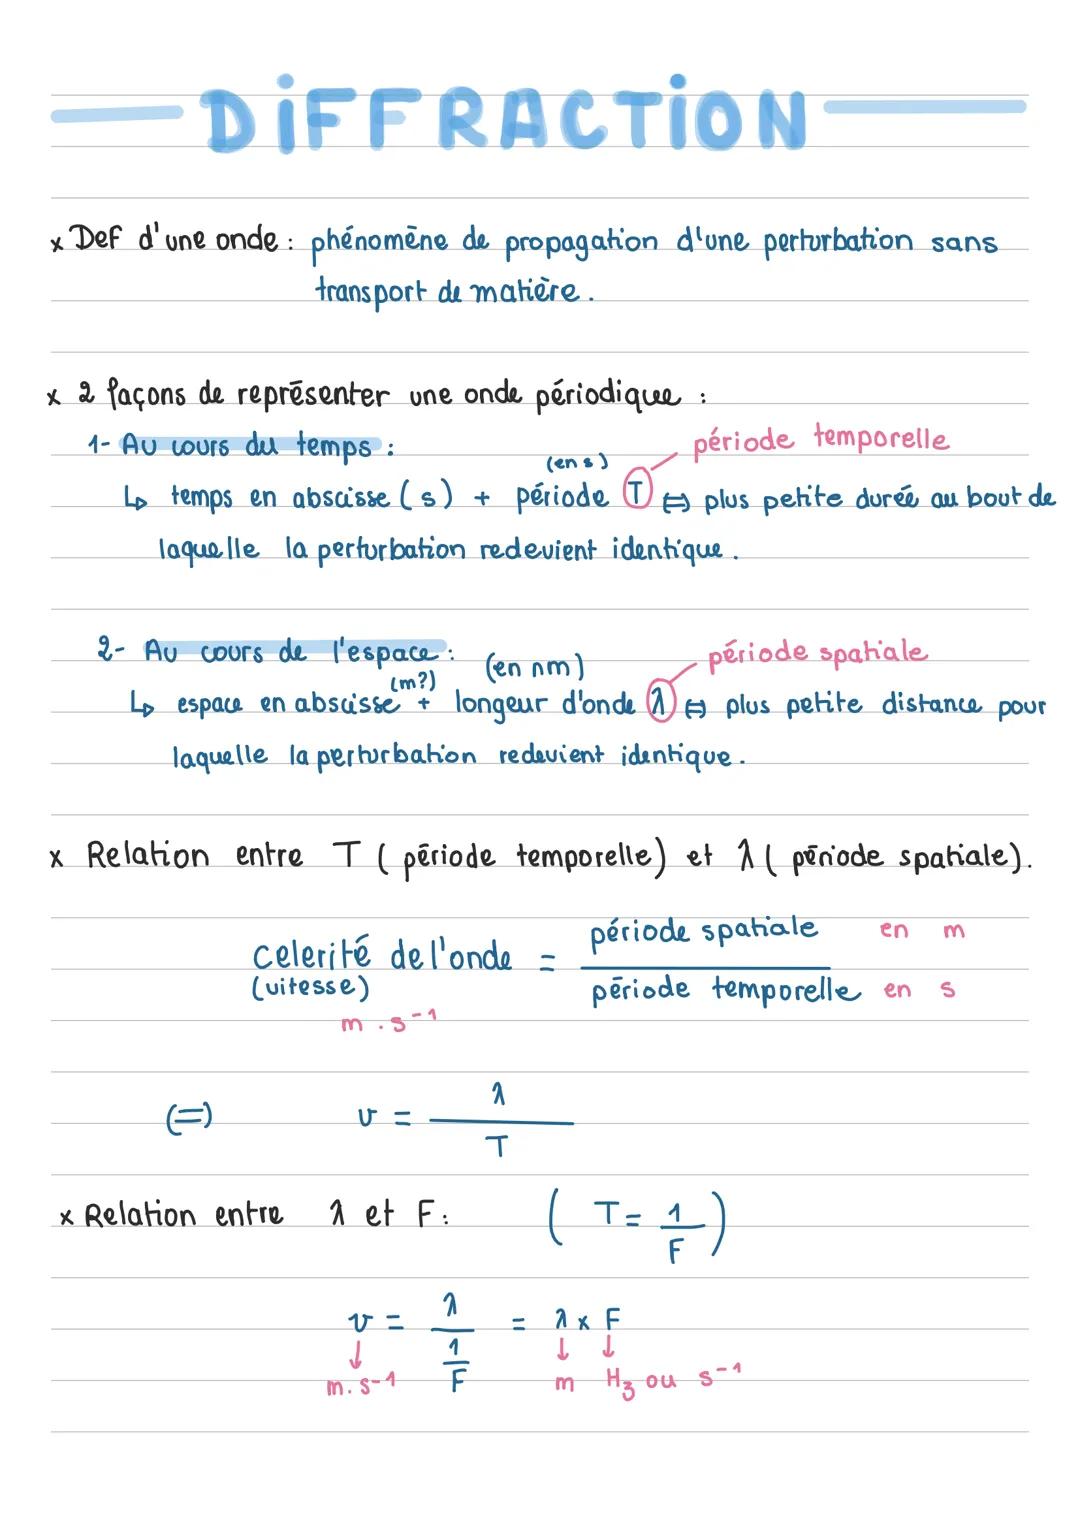 DiFFRACTiON
x Def d'une onde : phénomène de propagation d'une perturbation sans
transport de matière.
x 2 façons de représenter une onde périodique :
1- Au cours du temps :
période temporelle
(en s)
↳ temps en abscisse (s) + période T ⇔ plus petite durée au bout de
laquelle la perturbation redevient identique.
2- Au cours de l'espace :
(en nm)
période spatiale
(m?)
↳ espace en abscisse + longeur d'onde λ ⇔ plus petite distance pour
laquelle la perturbation redevient identique.
x Relation entre T ( période temporelle) et λ ( période spatiale).
période spatiale en m
celerité de l'onde =
(vitesse)
période temporelle en s
m.s-1
λ
(=) v =
T
x Relation entre λ et F : ( T = 1/F )
λ
v = = λ x F
↓ 1 ↓ ↓
m.s-1 F m Hz ou s-1